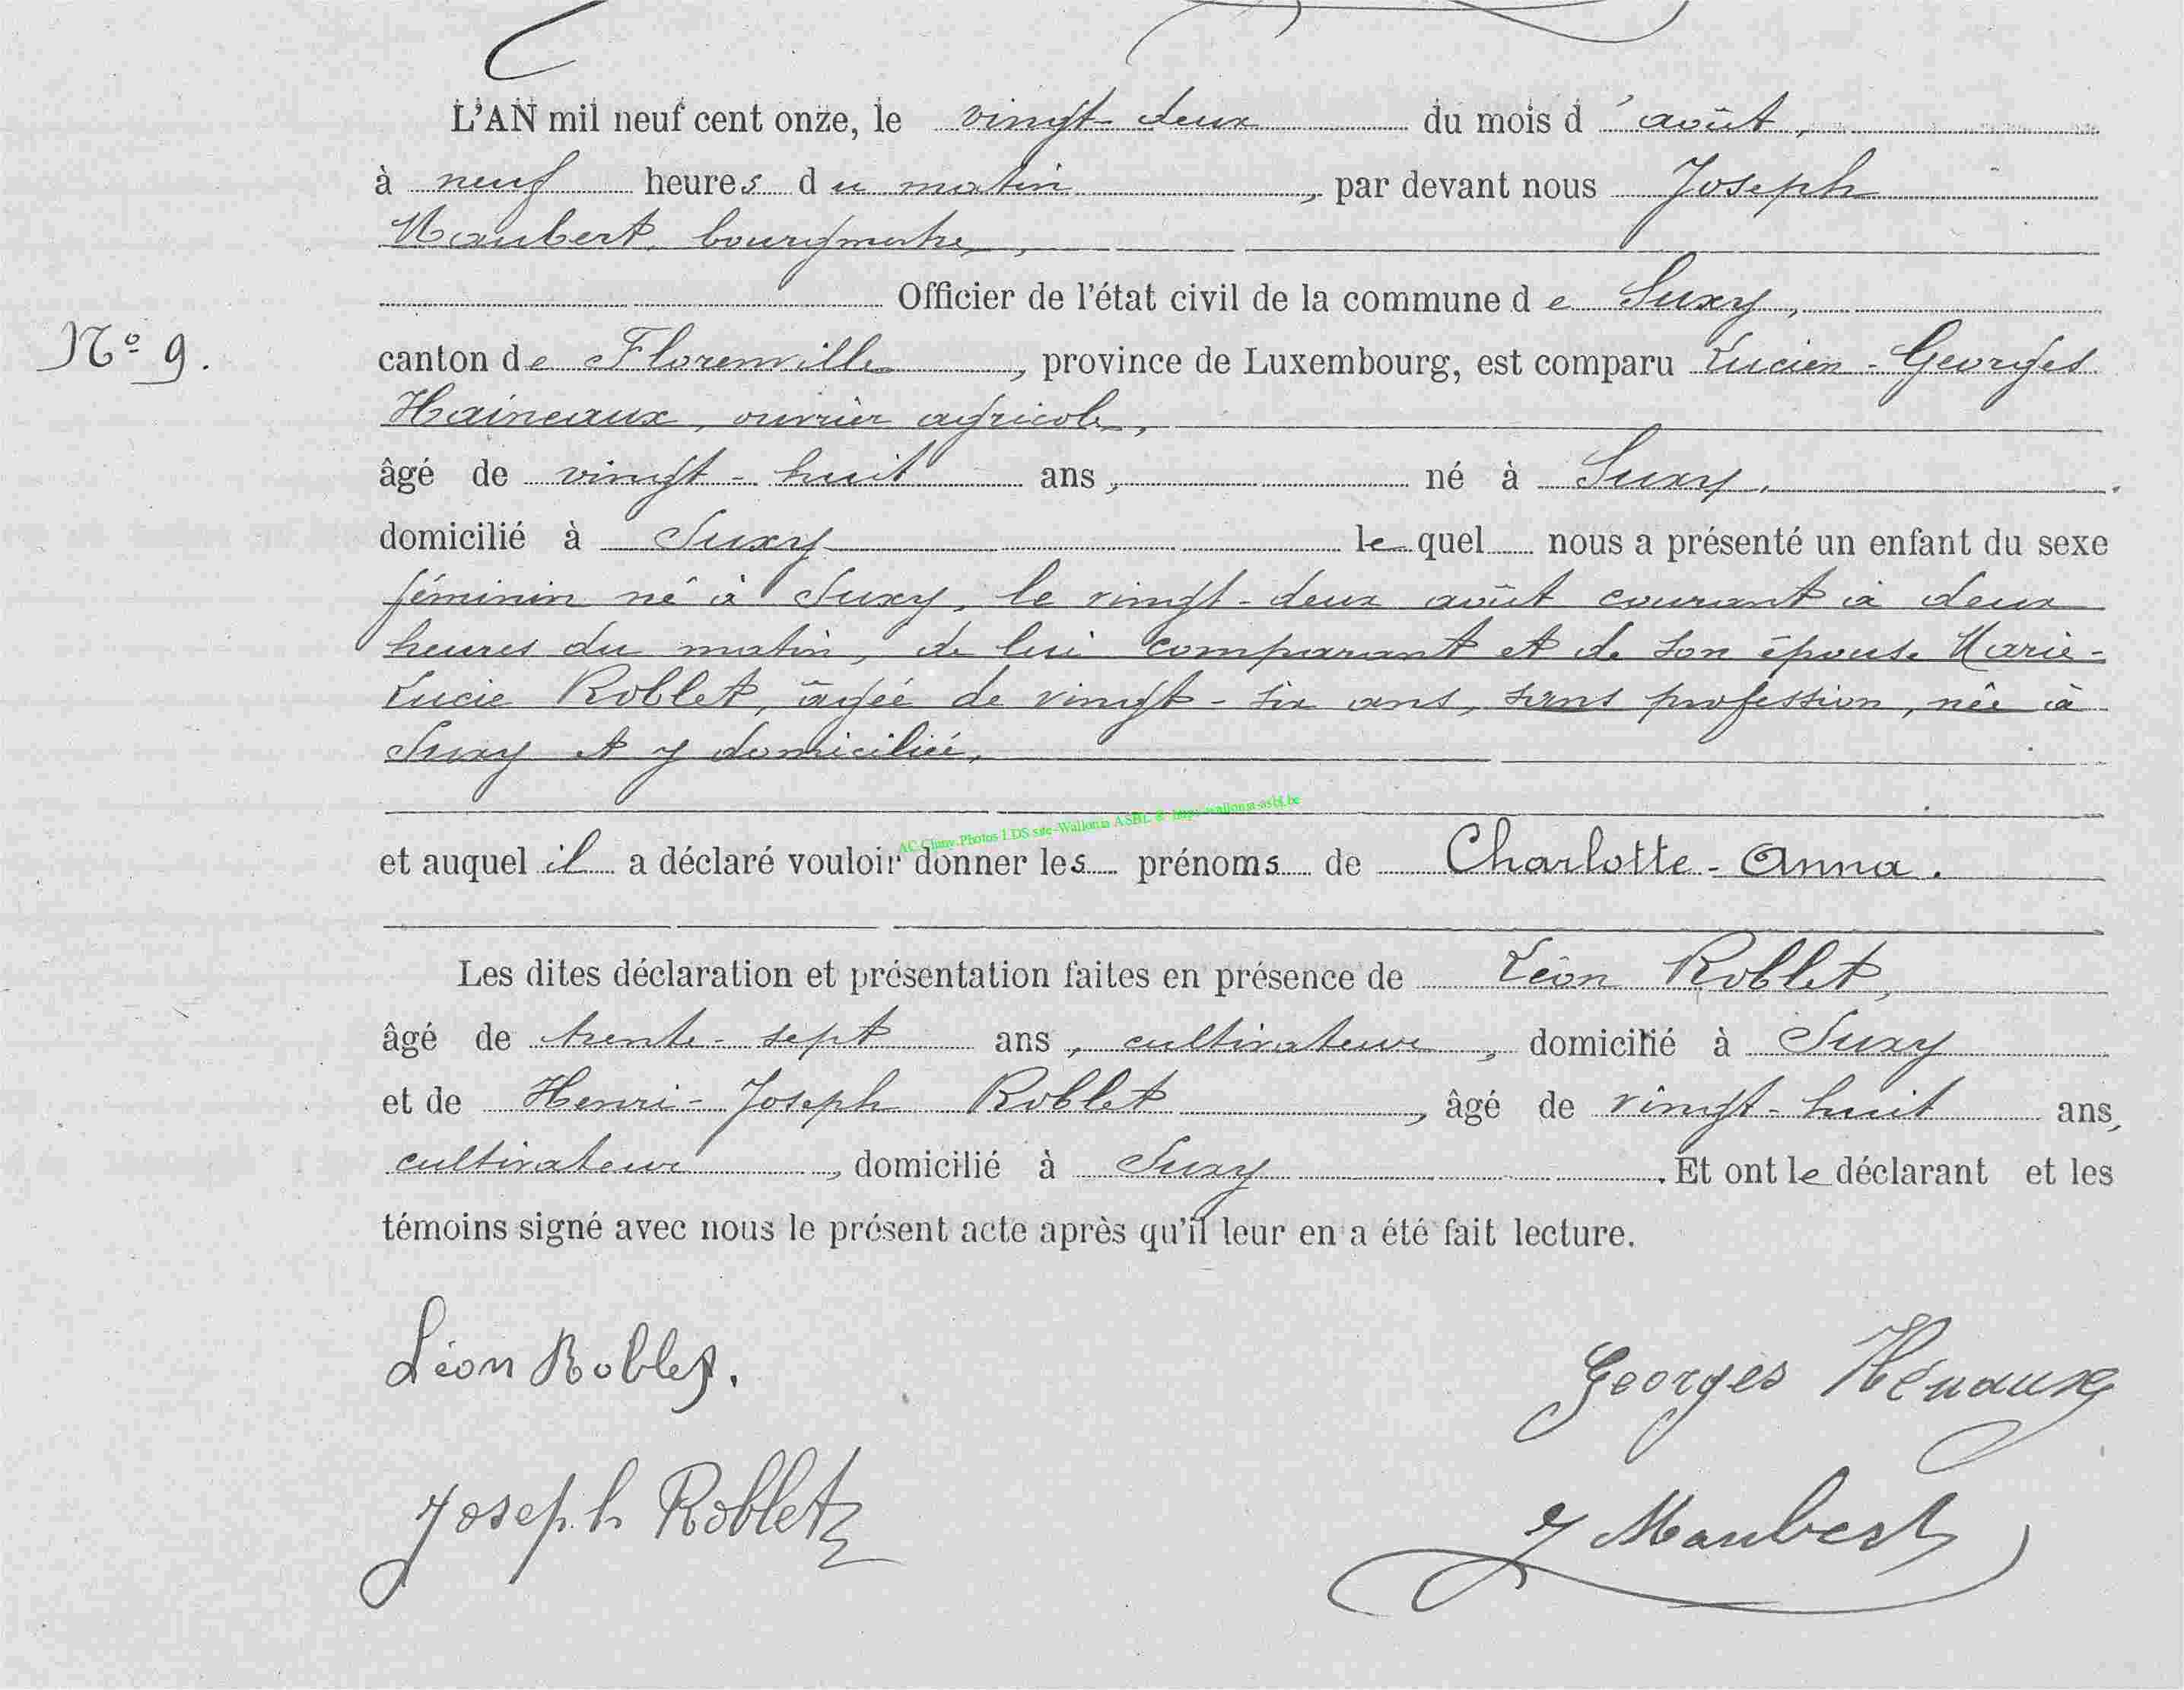 L'AN mil neuf cent onze, le vingt-deux du mois d'août,
à neuf heures du matin, par devant nous Joseph
Maubert, bourgmestre,
Officier de l'état civil de la commune de Suxy,
N° 9.
canton de Florenville, province de Luxembourg, est comparu Lucien-Georges
Haineaux, ouvrier agricole,
âgé de vingt-huit ans, né à Suxy,
domicilié à Suxy lequel nous a présenté un enfant du sexe
féminin né à Suxy, le vingt-deux août courant à deux
heures du matin, de lui comparant et de son épouse Marie-
Lucie Roblet, âgée de vingt-six ans, sans profession, née à
Suxy et y domiciliée,
AC.Chiny.Photos LDS site-Wallonia ASBL & http:/wallonia-asbl.be
et auquel il a déclaré vouloir donner les prénoms de Charlotte-Anna.
Les dites déclaration et présentation faites en présence de Léon Roblet,
âgé de trente-sept ans, cultivateur, domicilié à Suxy
et de Henri-Joseph Roblet, âgé de vingt-huit ans,
cultivateur, domicilié à Suxy. Et ont le déclarant et les
témoins signé avec nous le présent acte après qu'il leur en a été fait lecture.
Léon Roblet.
Georges Hénaux
Joseph Roblet
J Maubert